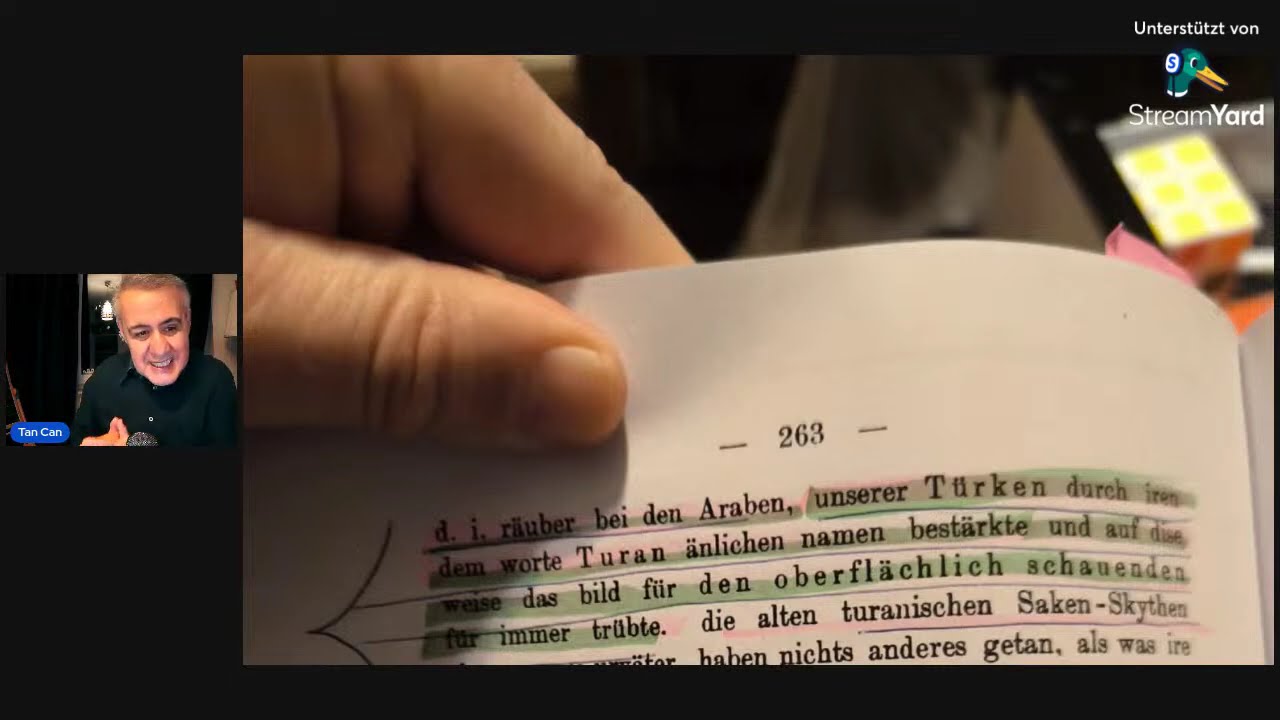 Unterstützt von
StreamYard
Tan Can
— 263 —
d. i. räuber bei den Araben, unserer Türken durch iren
dem worte Turan änlichen namen bestärkte und auf dise
weise das bild für den oberflächlich schauenden
für immer trübte. die alten turanischen Saken-Skythen
haben nichts anderes getan, als was ire